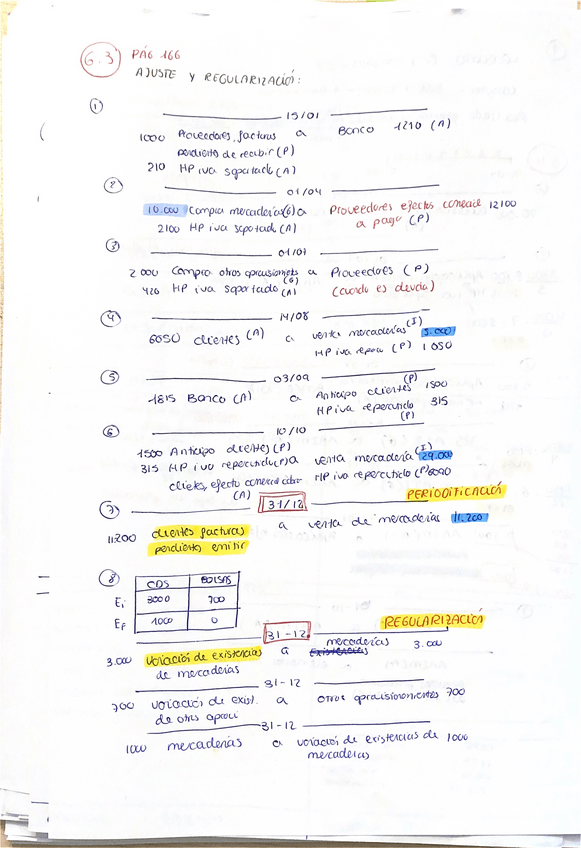 6.3 PÁG 166
AJUSTE Y REGULARIZACIÓN:
① 15/01
1000 Proveedores, facturas a Banco 1210 (A)
pendiente de recibir (P)
210 HP iva soportado (A)
② 01/04
10.000 Compra mercaderías (G) a Proveedores efectos comercial 12100
2100 HP iva soportado (A) a pagar (P)
③ 01/07
2 000 Compra otros aprovisionamientos a Proveedores (P)
(G)
420 HP iva soportado (A) (cuando es deuda)
④ 14/08
6050 clientes (A) a venta mercaderías (I) 5.000
HP iva reperc (P) 1 050
⑤ 03/09
1815 Banco (A) a Anticipo clientes (P) 1500
HP iva repercutido 315
(P)
⑥ 10/10
1500 Anticipo clientes (P)
315 HP iva repercutido (P) a venta mercadería (I) 29.000
clientes, efecto comercial cobrar HP iva repercutido (P) 6090
(A)
PERIODIFICACIÓN
⑦ 31/12
11.200 clientes facturas a venta de mercaderías 11.200
pendiente emitir
⑧ CDS BOLSAS
Ei 3000 700
Ef 1000 0
REGULARIZACIÓN
31-12
3.000 variación de existencias a existencias mercaderías 3.000
de mercaderías
31-12
700 variación de exist. a otros aprovisionamientos 700
de otros aprovi
31-12
1000 mercaderías a variación de existencias de 1000
mercaderías